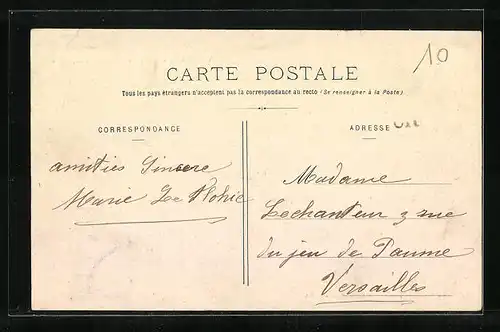 10
CARTE POSTALE
Tous les pays étrangers n'acceptent pas la correspondance au recto (Se renseigner à la Poste)
CORRESPONDANCE
ADRESSE
amitiés Sincere
Marie Le Flohic
Madame
Lechanteur 3 rue
du jeu de Paume
Versailles